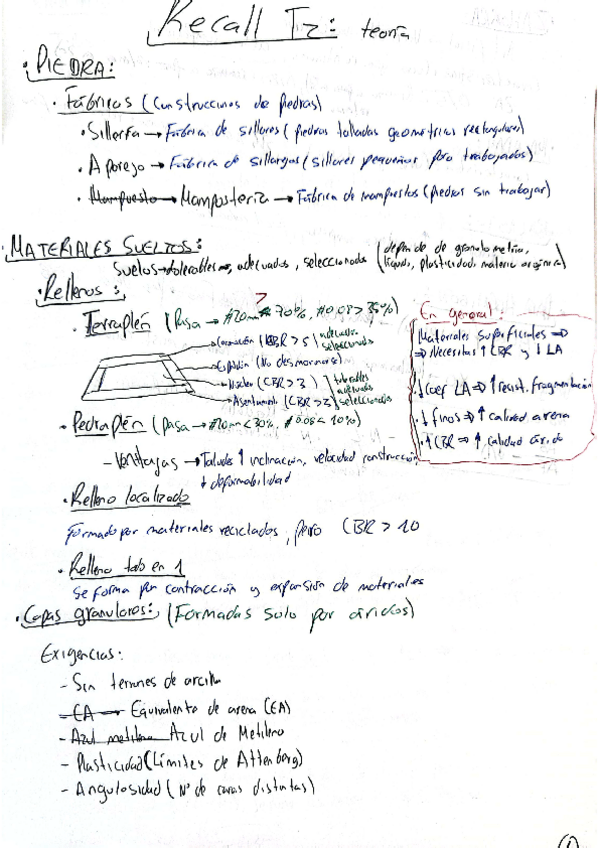 Recall T2: teoría
• PIEDRA:
• Fábricas (Construcciones de piedras)
• Sillería → Fábrica de sillares (piedras talladas geométricas rectangulares)
• Aparejo → Fábrica de sillarejos (sillares pequeños poco trabajados)
• Mampuesto → Mampostería → Fábrica de mampuestos (piedras sin trabajar)
• MATERIALES SUELTOS:
Suelos → tolerables, adecuados, seleccionados (depende de granulometría, líquido, plasticidad, materia orgánica)
• Rellenos:
• Terraplén (Pasa → #20mm > 70%, #0.08 > 35%)
→ Coronación (CBR > 5) adecuados seleccionados
→ Espaldón (No desmoronarse)
→ Núcleo (CBR > 3) tolerables adecuados
→ Asentamiento (CBR > 3) seleccionados
• Pedraplén (pasa → #20m < 30%, #0.08 < 10%)
- Ventajas → Taludes ↑ inclinación, velocidad construcción
↓ deformabilidad
En general:
Materiales superficiales ⇒
⇒ Necesitas ↑ CBR y ↓ LA
↓ coef LA ⇒ ↑ resist. fragmentación
↓ finos ⇒ ↑ calidad arena
• ↑ CBR ⇒ ↑ calidad árido
• Relleno localizado
Formado por materiales reciclados, pero CBR > 10
• Relleno tob en 1
Se forma por contracción y expansión de materiales
• Capas granulares: (Formadas solo por áridos)
Exigencias:
- Sin terrones de arcilla
- EA → Equivalente de arena (EA)
- Azul metileno Azul de Metileno
- Plasticidad (Límites de Attenberg)
- Angulosidad (Nº de caras distintas)
(1)